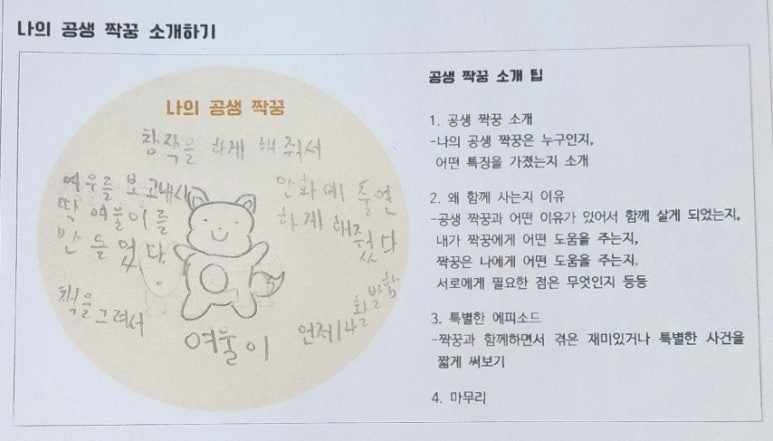 나의 공생 짝꿍 소개하기
나의 공생 짝꿍
창작을 하게 해 줘서
여우를 보고내사
딱 여울이를
만들었다.
만화에 출연
하게 해줬다
책을그려서
여울이
언제나
활발함
공생 짝꿍 소개 팁
1. 공생 짝꿍 소개
-나의 공생 짝꿍은 누구인지,
어떤 특징을 가졌는지 소개
2. 왜 함께 사는지 이유
-공생 짝꿍과 어떤 이유가 있어서 함께 살게 되었는지,
내가 짝꿍에게 어떤 도움을 주는지,
짝꿍은 나에게 어떤 도움을 주는지,
서로에게 필요한 점은 무엇인지 등등
3. 특별한 에피소드
-짝꿍과 함께하면서 겪은 재미있거나 특별한 사건을
짧게 써보기
4. 마무리